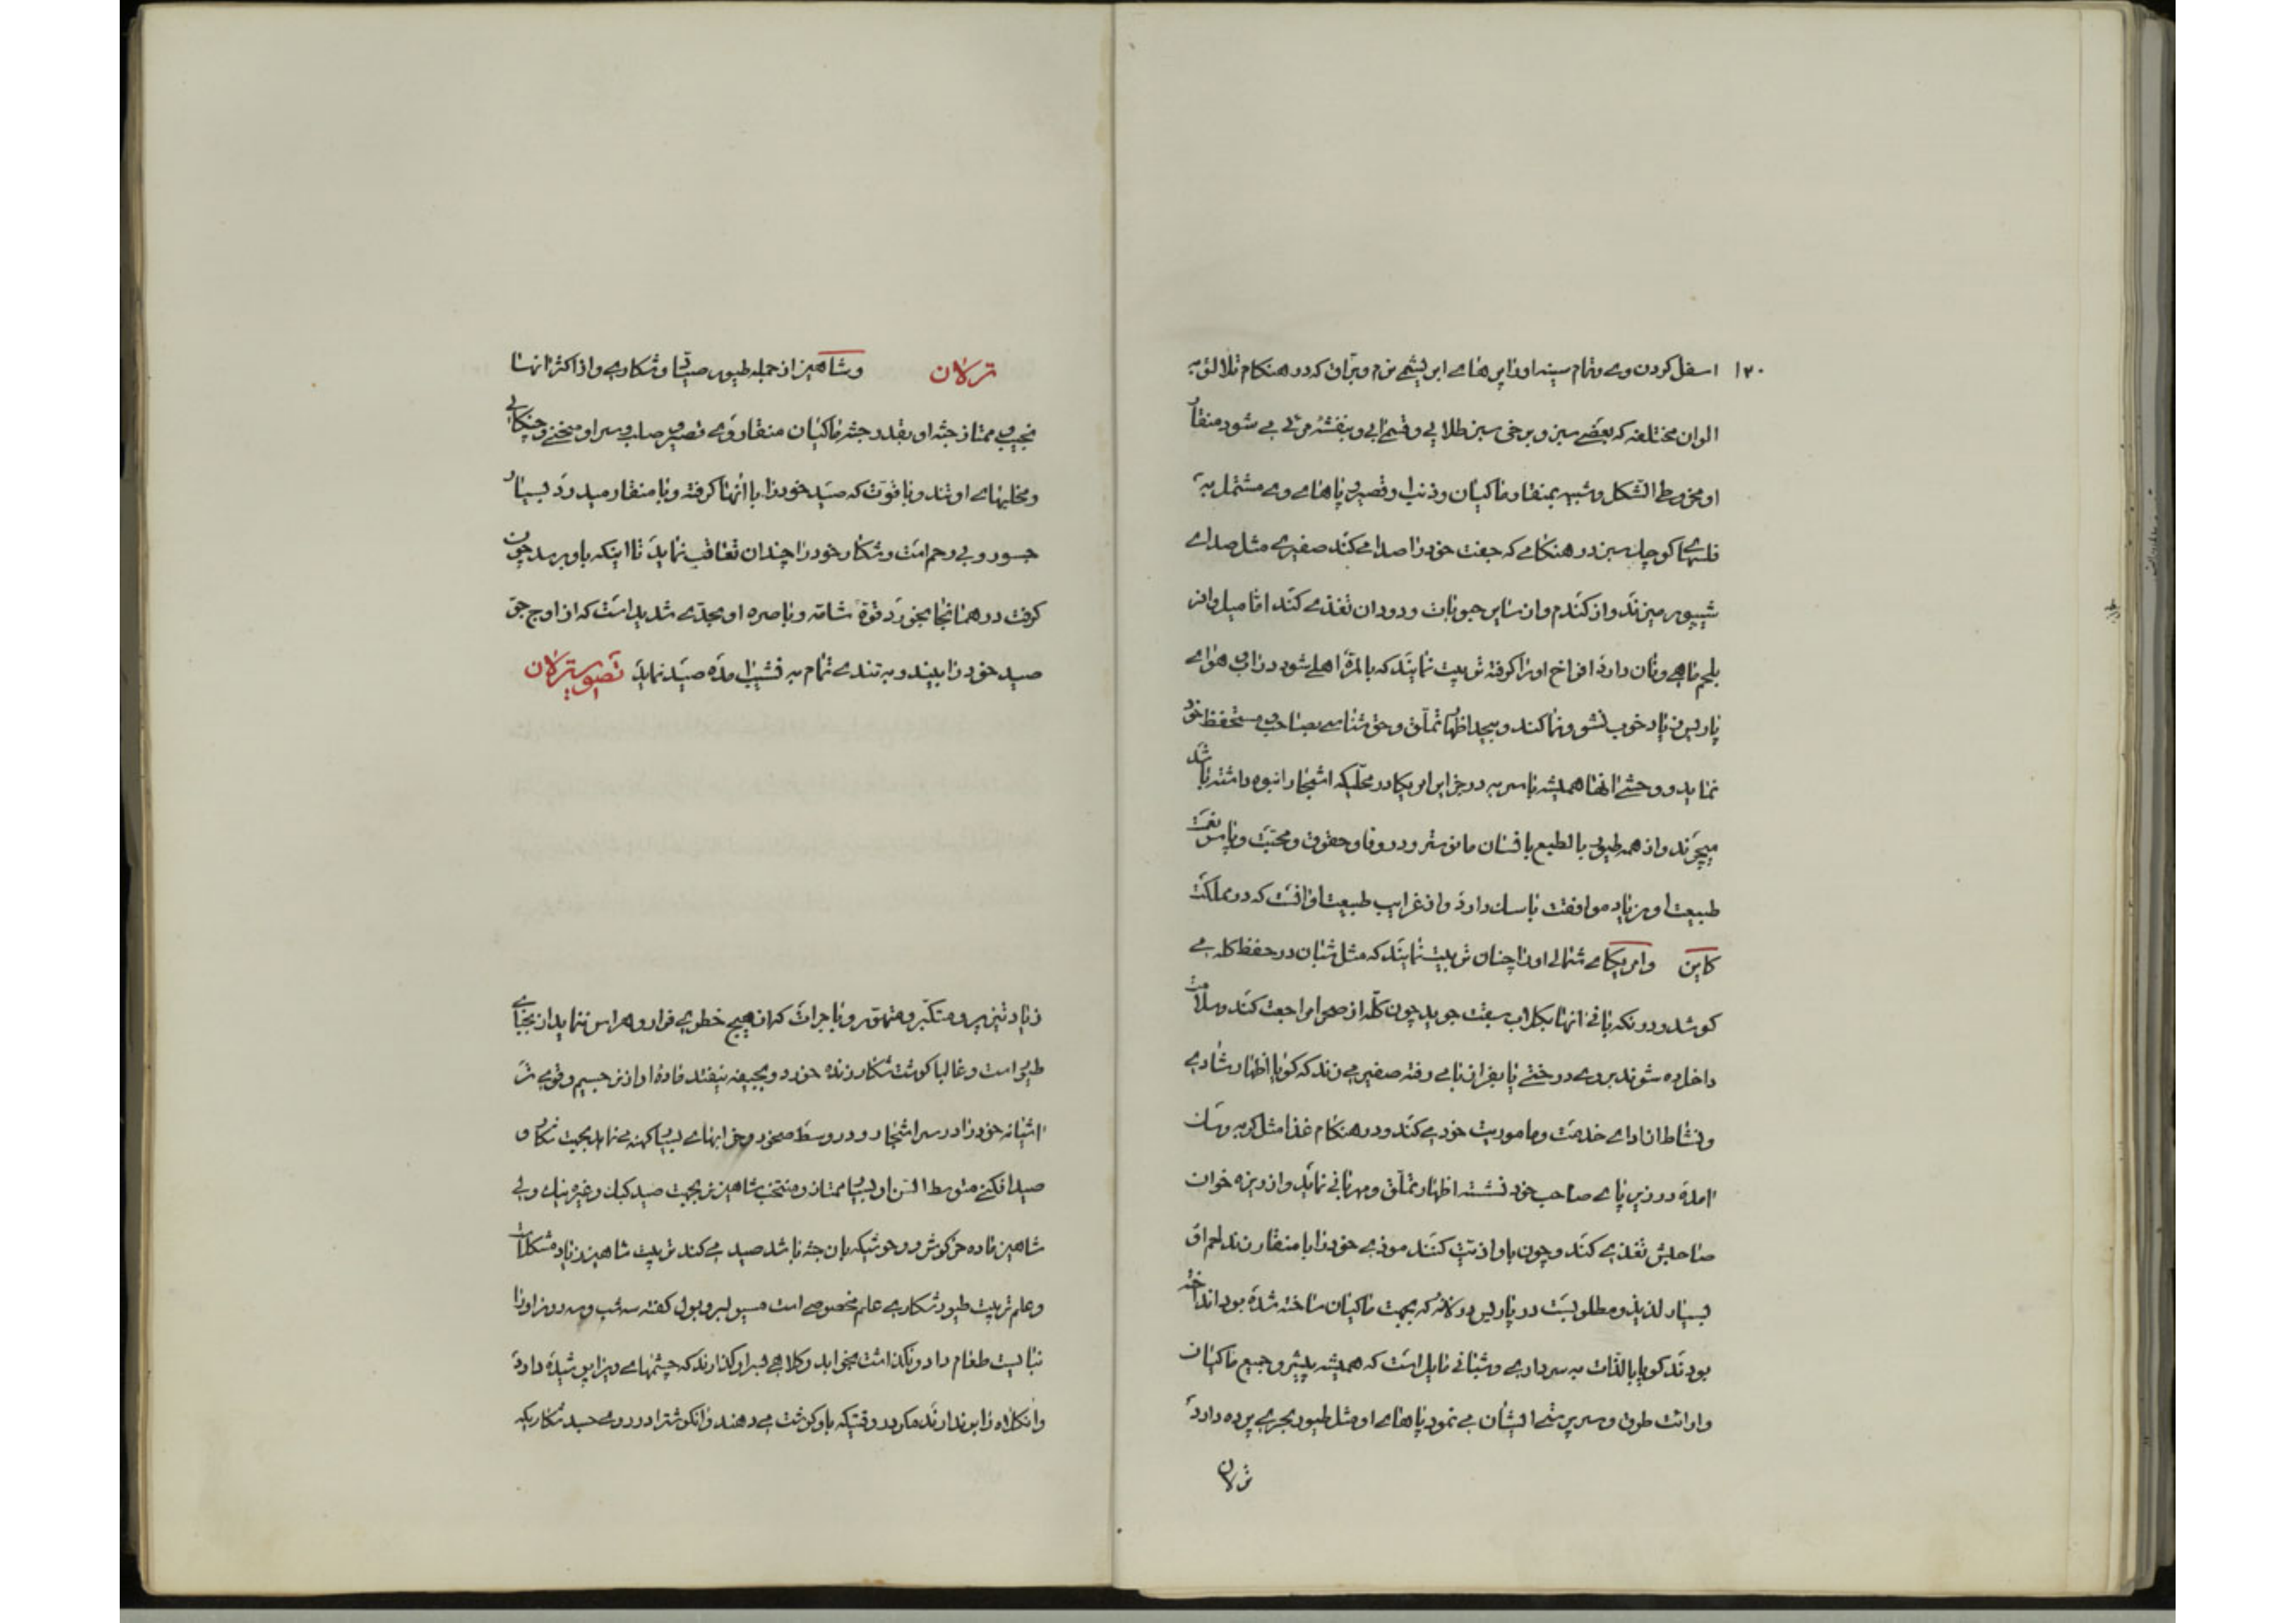 ۱۲۰
اسفل کردن وی و تمام سینه او را پرهای ابریشمی نرم و براق که در هنکام تلالؤ به
الوان مختلفه که بعضی سبز و برخی سبز طلایی و قسم آبی و بنفشه مرئی می شود منقار
او مخروط الشکل و شبیه بمنقار ماکیان و ذنب او قصیر و پاهای وی مشتمل به
فلسهای کوچک سبز در هنکامی که جفت خود را صدا می کند صفیری مثل صدای
شیپور میزند و از کندم و از سایر حبوبات و دودان تغذی کند اما میل وافر
بلحم ماهی و نان دارد افراخ او را کرفته تربیت نمایند که بالمرة اهلی شود در آب و هوای
پاریس زیاد خوب نشو و نما کند و بیحد اظهار تملق و حق شناسی بصاحب و مستحفظ خود
نماید و وحشی آنها همیشه باسر به در جزایر امریکا در محلیکه اشجار انبوه داشته باشد
میچرند و از همه طیور بالطبع بافسان مانوستر و در وفا و حقوق و محبت و پاس نعمت
طبیعت او زیاد موافقت با سک دارد و از غرایب طبیعت او آنست که در مملکت
کاین و امریکای شمالی او را چنان تربیت نمایند که مثل شبان در حفظ کله می
کوشد و در نکهبانی آنها بکلاب سبقت جوید چون کله از صحرا مراجعت کند و سلامت
داخل ده شوند بر روی درختی یا بفراز بامی رفته صفیر می زند که کویا اظهار شادی
و نشاط از ادای خدمت و ماموریت خود می کند و در هنکام غذا مثل کربه و سک
آمده در زیر پای صاحب خود نشسته اظهار تملق و مهربانی نماید و از ریزه خوان
صاحبش تغذی کند و چون باو اذیت کنند موذی خود را با منقار زند لحم او
بسیار لذیذ و مطلوبست در پاریس در لانه که بجهت ماکیان ساخته شده بود انداخته
بودند کویا بالذات به سرداری و شبانی مایل است که همیشه پیشرو جمیع ماکیان
و ادات طرق و سرپرستی ایشان می نمود پاهای او مثل طیور بحری پرده دارد
ترلان
ترلان و شاهین از جمله طیور صیاد و شکاری و از اکثر آنها
نجیب و ممتاز جثه او بقدر جثه ماکیان منقار وی قصیر و صلب و سر او منحنی و چنکالی
و مخلبهای او تند و با قوت که صید خود را با آنها کرفته و با منقار میدرد بسیار
جسور و بی رحم است و شکار خود را چندان تعاقب نماید تا اینکه باو برسد چون
کرفت در همانجا بخورد قوة شامه و باصره او بحدی شدید است که از اوج جو
صید خود را ببیند و به تندی تمام به نشیب آمده صید نماید تصویر ترلان
زیاد تیزپر و متکبر و متهور و با جرات که از هیچ خطری فرار و هراس ننماید از نجبای
طیور است و غالبا کوشت شکار زنده خورد و بجیفه نیفتد ماده او از نر جسیم و قوی تر
آشیانه خود را در سر اشجار و در وسط صخور و خرابهای بسیار کهنه می نماید بجهت شکار و
صید افکنی متوسط السن او بسیار ممتاز و منتخب شاهین نر بجهت صید کبک و غیره نیک ولی
شاهین ماده خرکوش و وحوشیکه بان جثه باشد صید می کند تربیت شاهین زیاد مشکل است
و علم تربیت طیور شکاری علم مخصوصی است مسیو لبروبول کفته سه شب و سه روز او را
نبایست طعام داد و نکذاشت بخوابد و کلاهی بسر او کذارند که چشمهای ویرا پوشیده دارد
و آنکلاه را برندارند مکر در وقتیکه باو کوشت می دهند و آنکوشترا در روی جسد شکاریکه